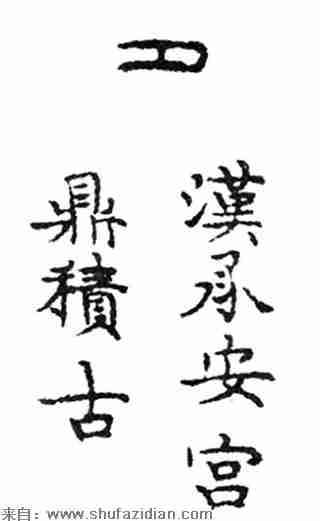 漢承安宮
鼎積古
来自：www.shufazidian.com